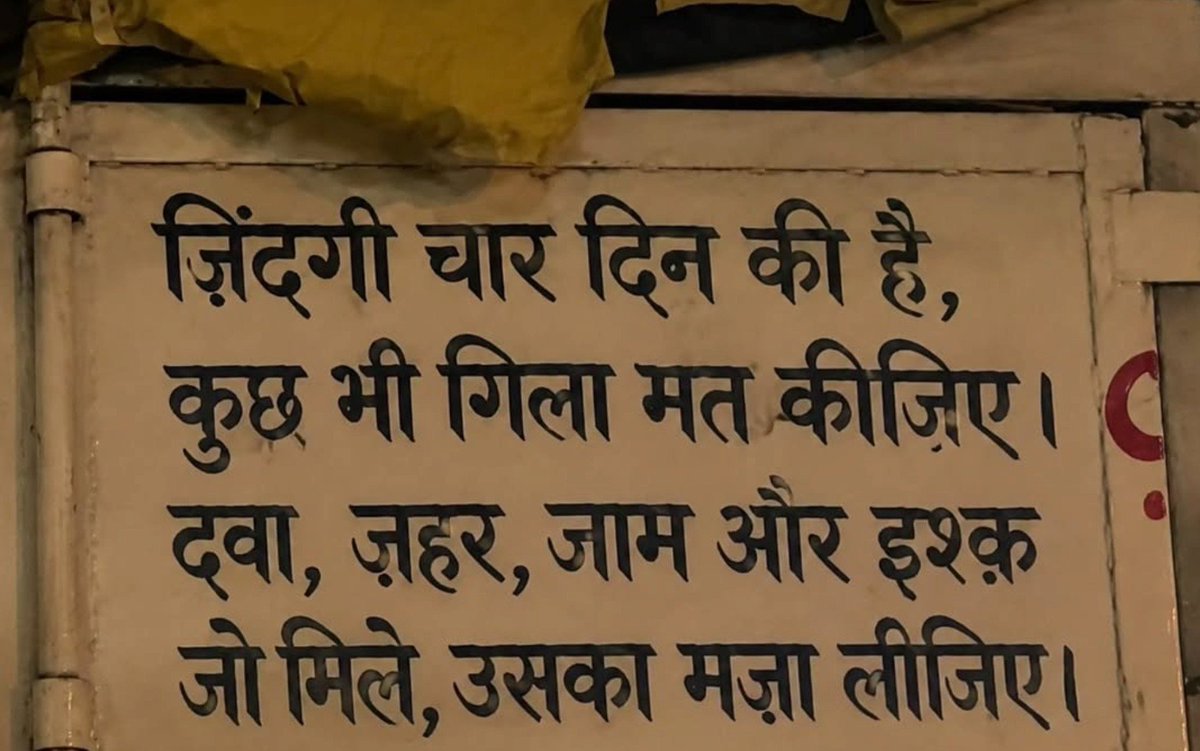 ज़िंदगी चार दिन की है,
कुछ भी गिला मत कीज़िए।
दवा, ज़हर, जाम और इश्क़
जो मिले, उसका मज़ा लीजिए।